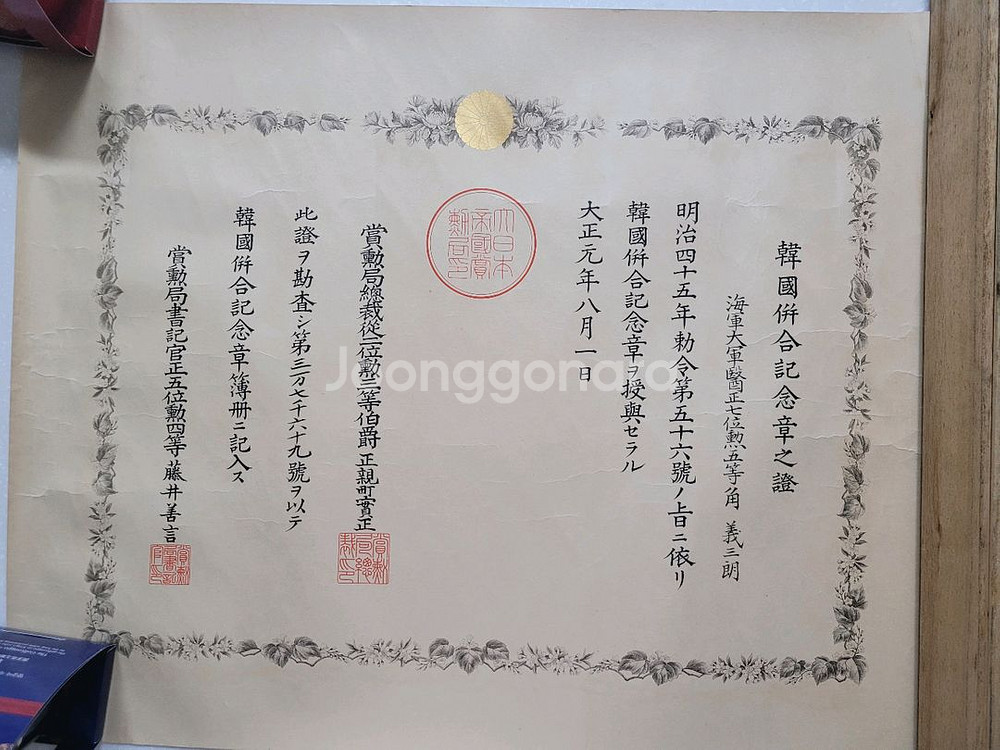 韓國倂合記念章之證
海軍大軍醫正七位勲五等角 義三朗
明治四十五年勅令第五十六號ノ旨ニ依リ
韓國倂合記念章ヲ授與セラル
大正元年八月一日
大日本
帝國賞
勲局印
賞勲局總裁從二位勲三等伯爵 正親町實正
賞勲
局總
裁印
此證ヲ勘査シ第三万七千六十九號ヲ以テ
韓國倂合記念章簿册ニ記入ス
賞勲局書記官正五位勲四等 藤井善言
Joonggonara